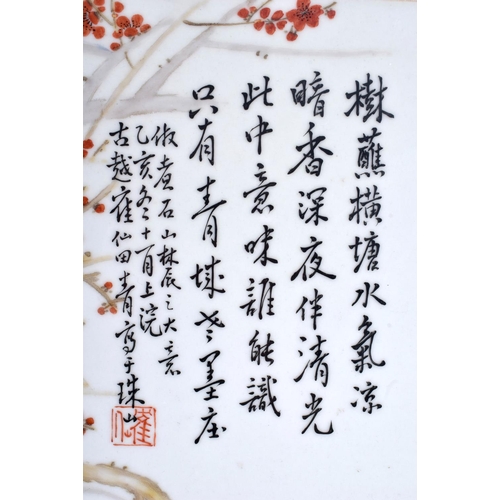 樹蘸橫塘水氣凉
暗香深夜伴清光
此中意味誰能識
只有青城老墨庄
倣煮石山林辰之大意
乙亥冬十二月上浣
古越崔仙田青寫于珠山
崔仙